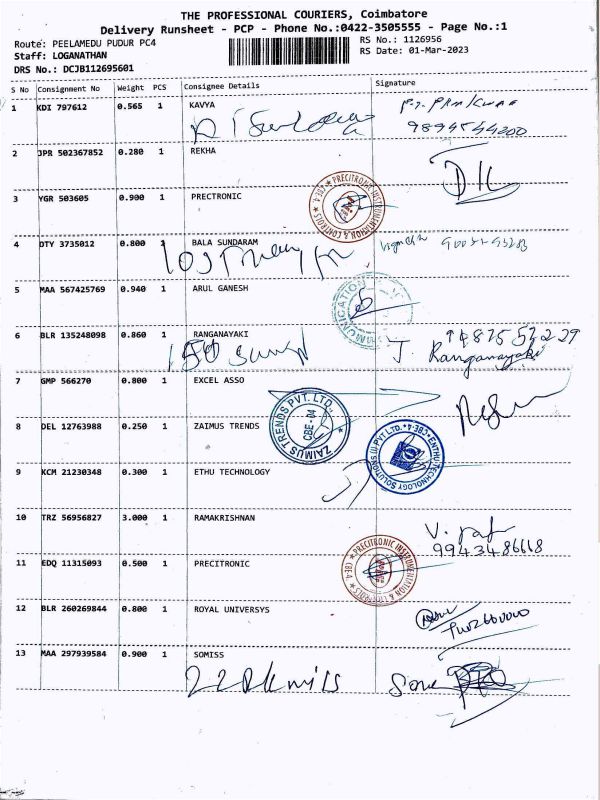 THE PROFESSIONAL COURIERS, Coimbatore
Delivery Runsheet - PCP - Phone No.:0422-3505555 - Page No.:1
Route: PEELAMEDU PUDUR PC4
RS No.: 1126956
Staff: LOGANATHAN
RS Date: 01-Mar-2023
DRS No.: DCJB112695601
S No Consignment No Weight PCS Consignee Details Signature
1 KDI 797612 0.565 1 KAVYA
9894544200
2 JPR 502367852 0.280 1 REKHA
3 YGR 503605 0.900 1 PRECTRONIC
PRECITRONIC INSTRUMENTATION & CONTROLS CBE-4
4 DTY 3735012 0.800 1 BALA SUNDARAM
5 MAA 567425769 0.940 1 ARUL GANESH
6 BLR 135248098 0.860 1 RANGANAYAKI
J. Ranganayaki
7 GMP 566270 0.800 1 EXCEL ASSO
8 DEL 12763988 0.250 1 ZAIMUS TRENDS
ZAIMUS TRENDS PVT. LTD., CBE-04
ENTHU TECHNOLOGY SOLUTIONS (I) PVT LTD. CBE-4
9 KCM 21230348 0.300 1 ETHU TECHNOLOGY
10 TRZ 56956827 3.000 1 RAMAKRISHNAN
9943486618
11 EDQ 11315093 0.500 1 PRECITRONIC
PRECITRONIC INSTRUMENTATION & CONTROLS CBE-4
12 BLR 260269844 0.800 1 ROYAL UNIVERSYS
13 MAA 297939584 0.900 1 SOMISS